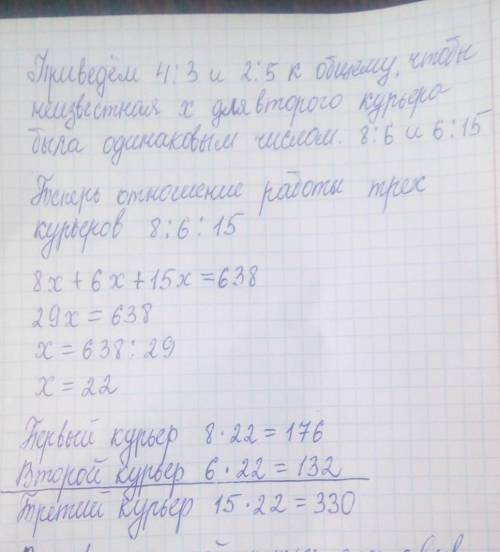 Приведём 4:3 и 2:5 к общему, чтобы
неизвестная х для второго курьера
была одинаковым числом. 8:6 и 6:15
Теперь отношение работы трех
курьеров 8:6:15
8х + 6х + 15х = 638
29х = 638
х = 638 : 29
х = 22
Первый курьер 8 · 22 = 176
Второй курьер 6 · 22 = 132
Третий курьер 15 · 22 = 330